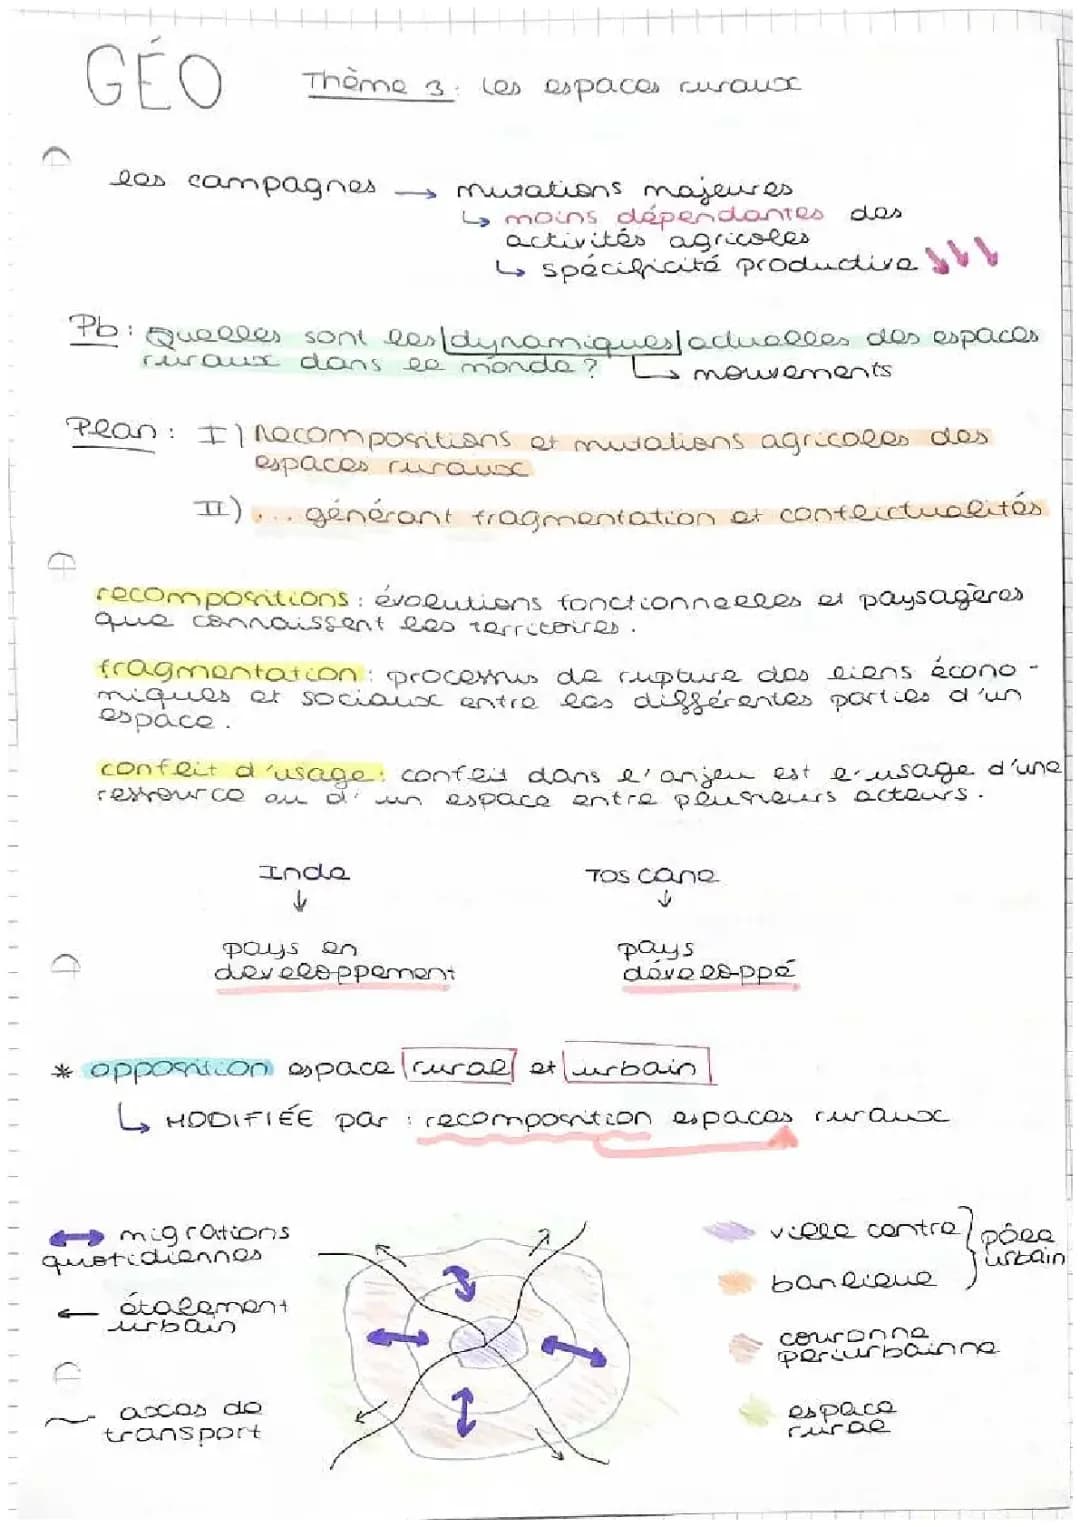 GÉO
Thème 3 : les espaces ruraux
les campagnes → mutations majeures
↳ moins dépendantes des
activités agricoles
↳ spécificité productive ↓↓↓
Pb : Quelles sont les dynamiques actuelles des espaces
ruraux dans le monde ?
↳ mouvements
Plan : I) Recompositions et mutations agricoles des
espaces ruraux
II) ... générant fragmentation et conflictualités
recompositions : évolutions fonctionnelles et paysagères
que connaissent les territoires.
fragmentation : processus de rupture des liens écono-
miques et sociaux entre les différentes parties d'un
espace.
conflit d'usage : conflit dans l'enjeu est l'usage d'une
ressource ou d'un espace entre plusieurs acteurs.
Inde
↓
pays en
developpement
Toscane
↓
pays
développé
* opposition espace rural et urbain
↳ MODIFIÉE par : recomposition espaces ruraux
↔ migrations
quotidiennes
← étalement
urbain
axes de
transport
ville centre
banlieue
} pôle
urbain
couronne
periurbainne
espace
rural